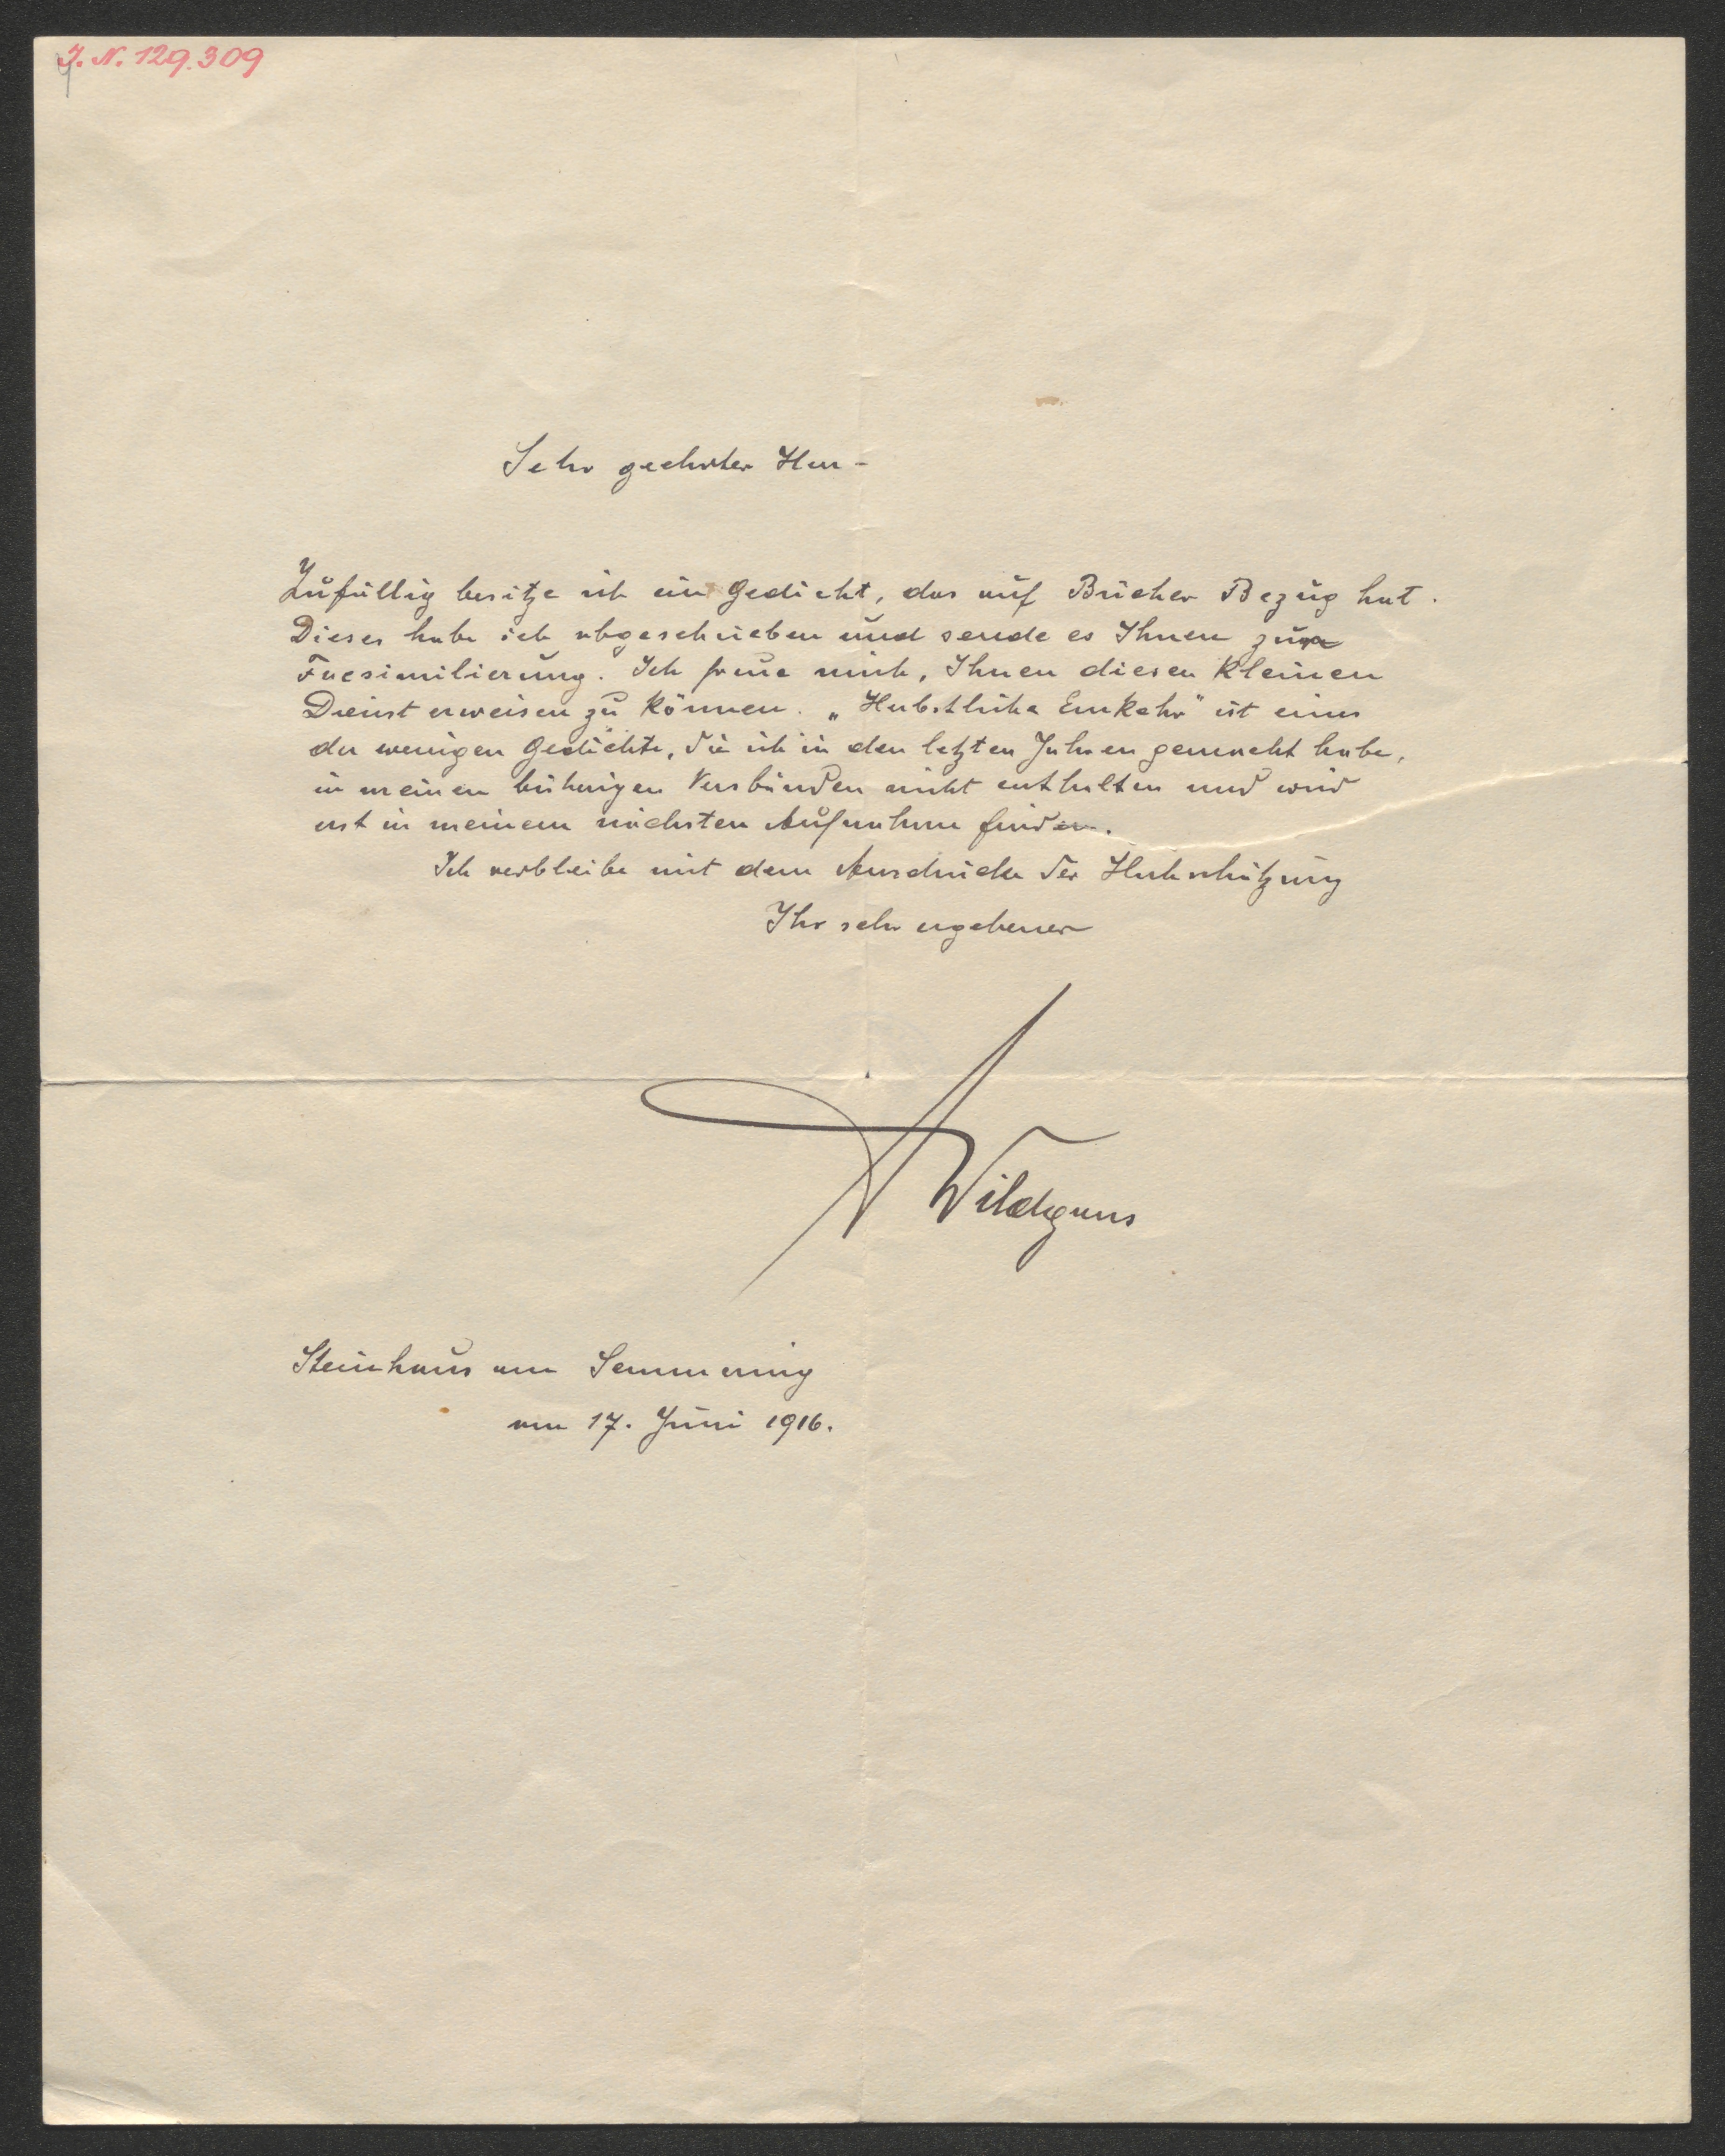 J. N. 129.309
Sehr geehrter Herr –
Zufällig besitze ich ein Gedicht, das auf Bücher Bezug hat.
Dieses habe ich abgeschrieben und sende es Ihnen zur
Facsimilierung. Ich freue mich, Ihnen diesen kleinen
Dienst erweisen zu können. „Herbstliche Einkehr" ist eines
der wenigen Gedichte, die ich in den letzten Jahren gemacht habe,
in meinen bisherigen Versbänden nicht enthalten und wird
erst in meinem nächsten Aufnahme finden.
Ich verbleibe mit dem Ausdrucke der Hochschätzung
Ihr sehr ergebener
A Wildgans
Steinhaus am Semmering
am 17. Juni 1916.